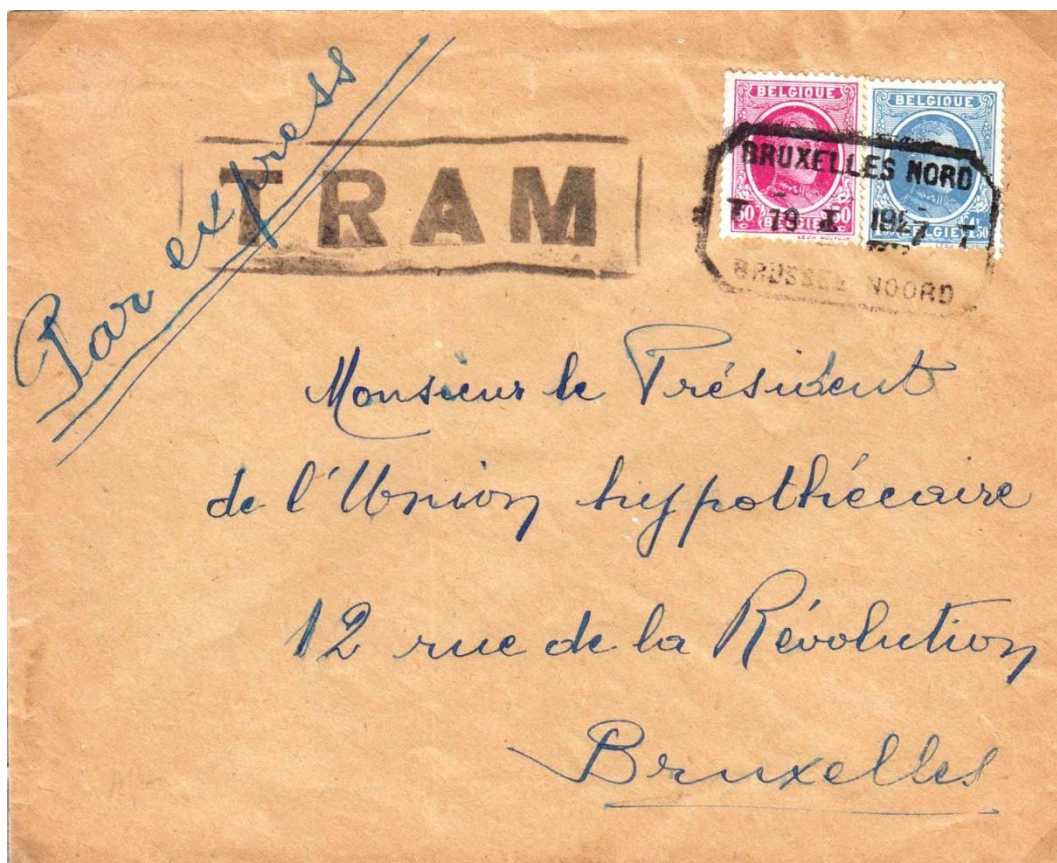 Par express
TRAM
BELGIQUE
BELGIQUE
BRUXELLES NORD
T 19 I 1927 T
BELGIË
BELGIË
BRUSSEL NOORD
Monsieur le Président
de l'Union hypothécaire
12 rue de la Révolution
Bruxelles